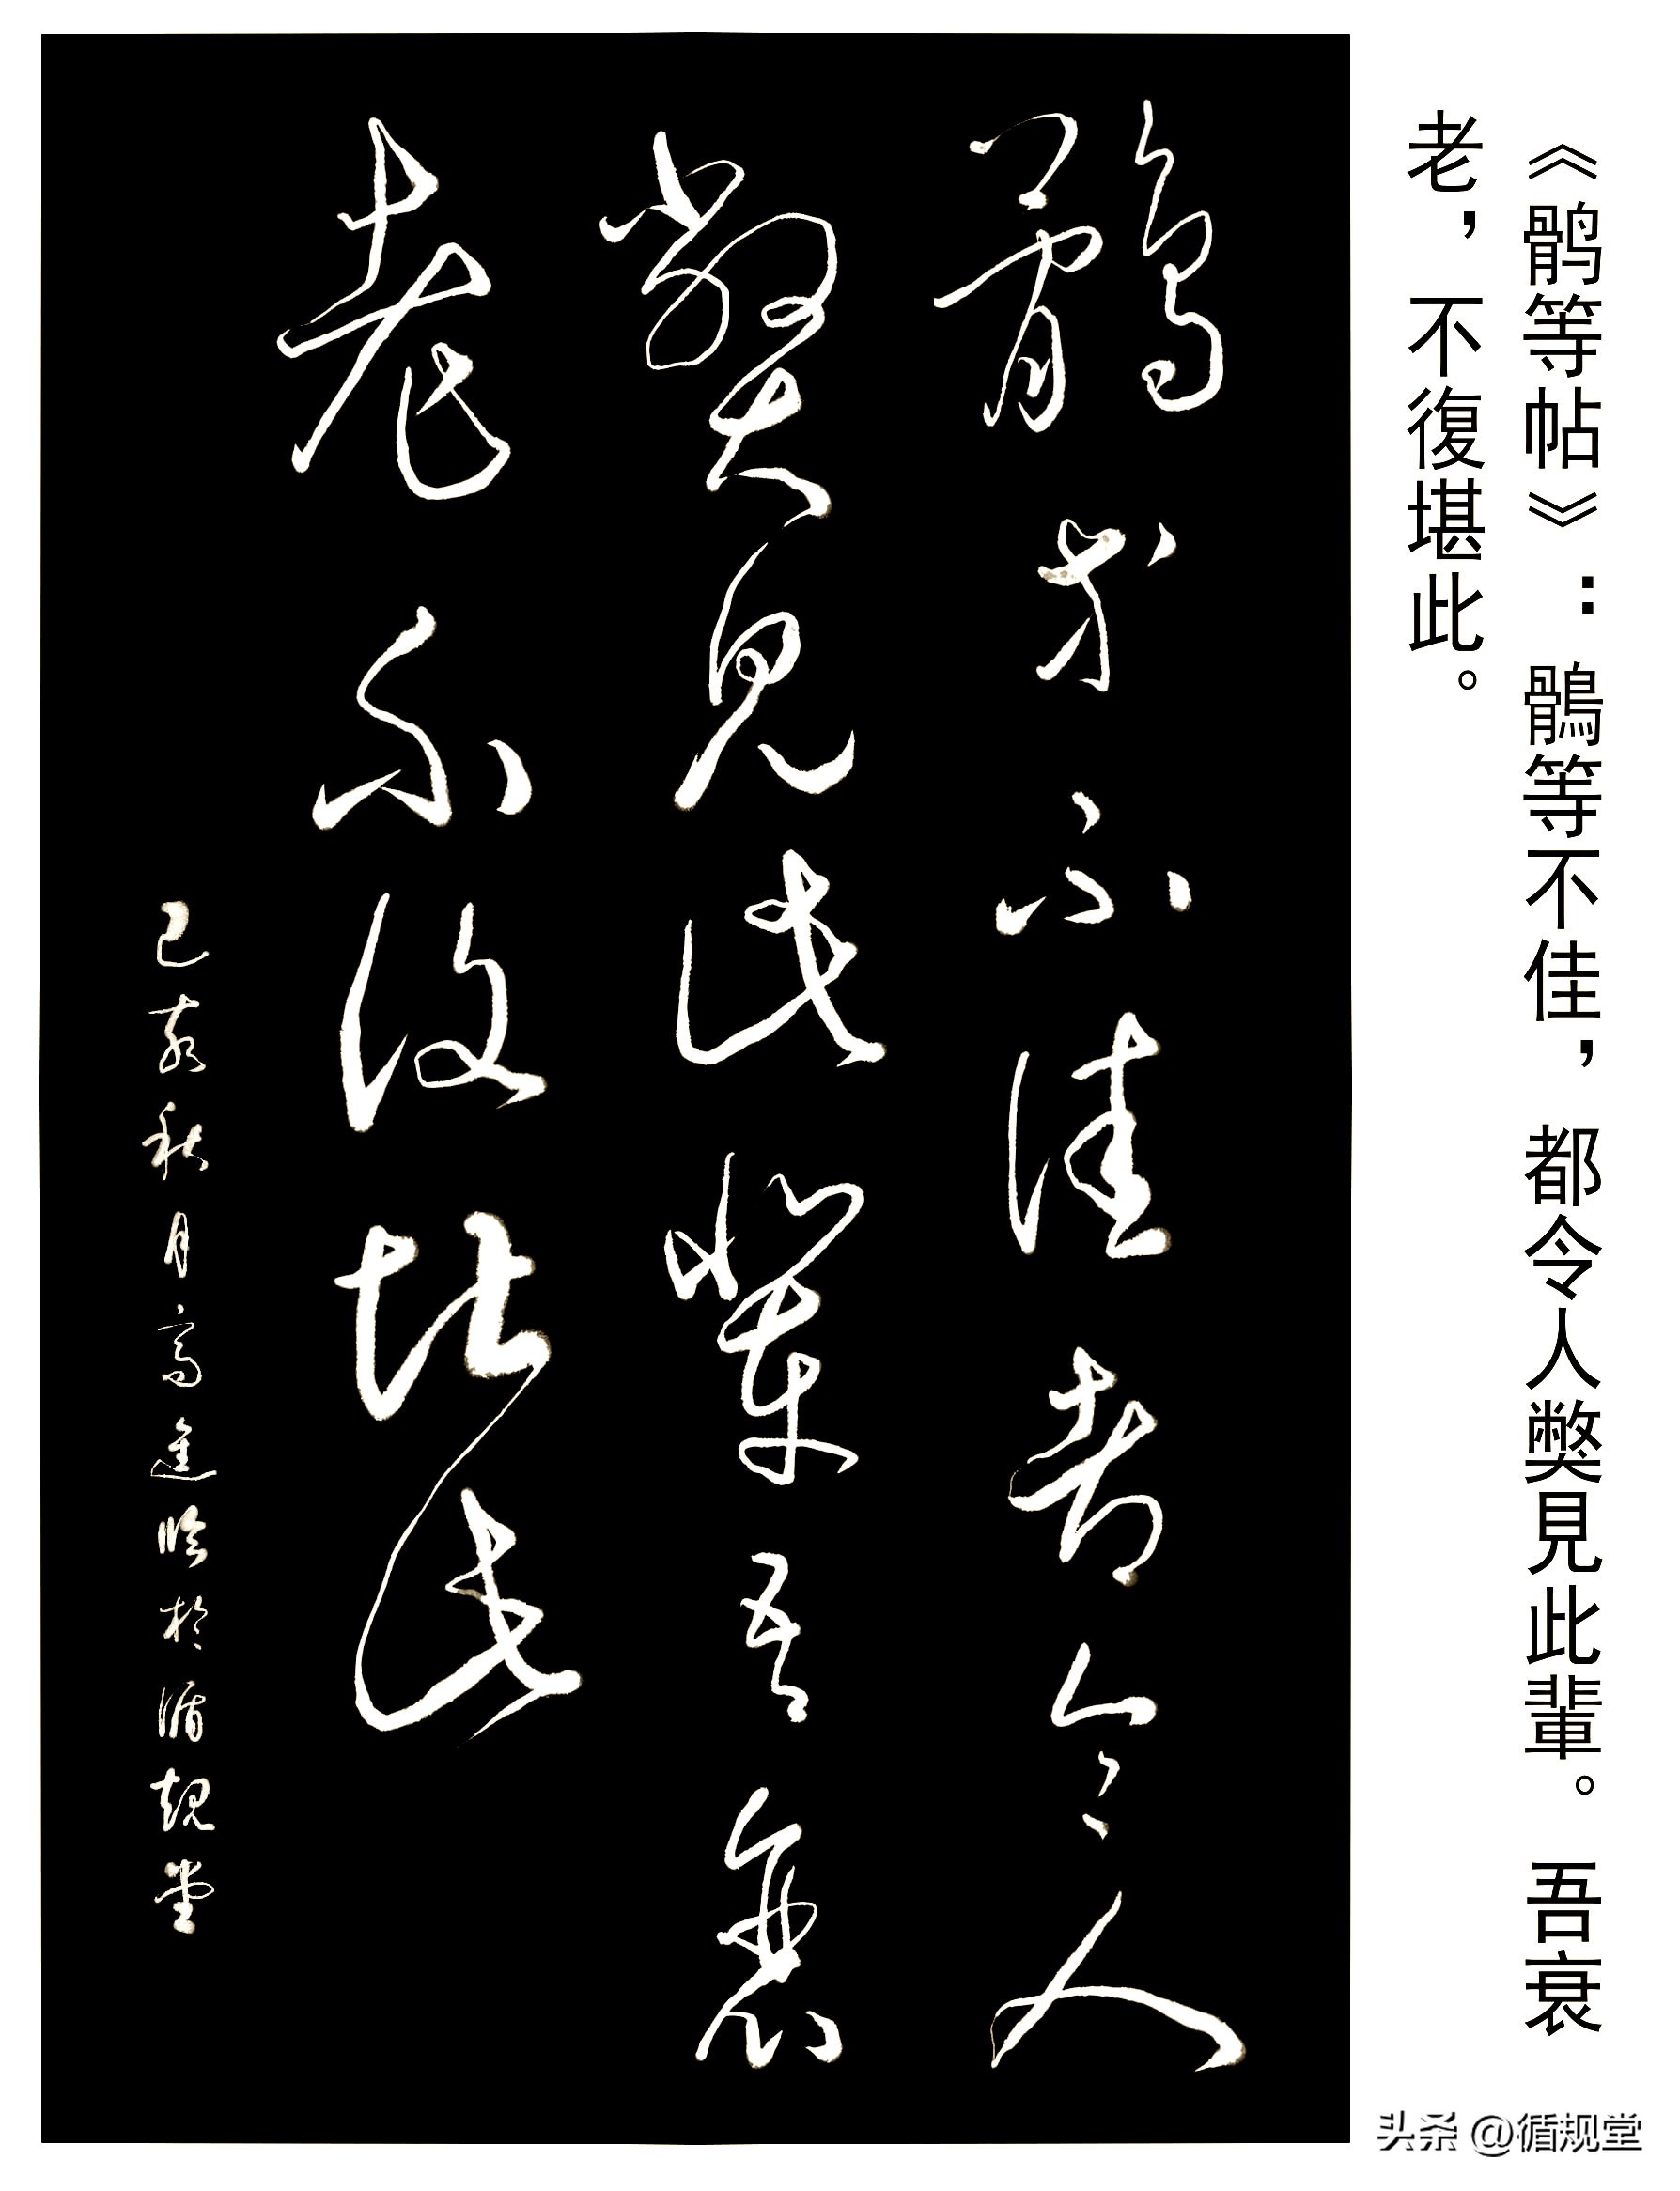 《鹘等帖》：鶻等不佳，都令人獘見此輩。吾衰
老，不復堪此。
鶻等不佳都令人
獘見此輩吾衰
老不復堪此
己亥秋月高進臨於循規堂
头条 @循规堂